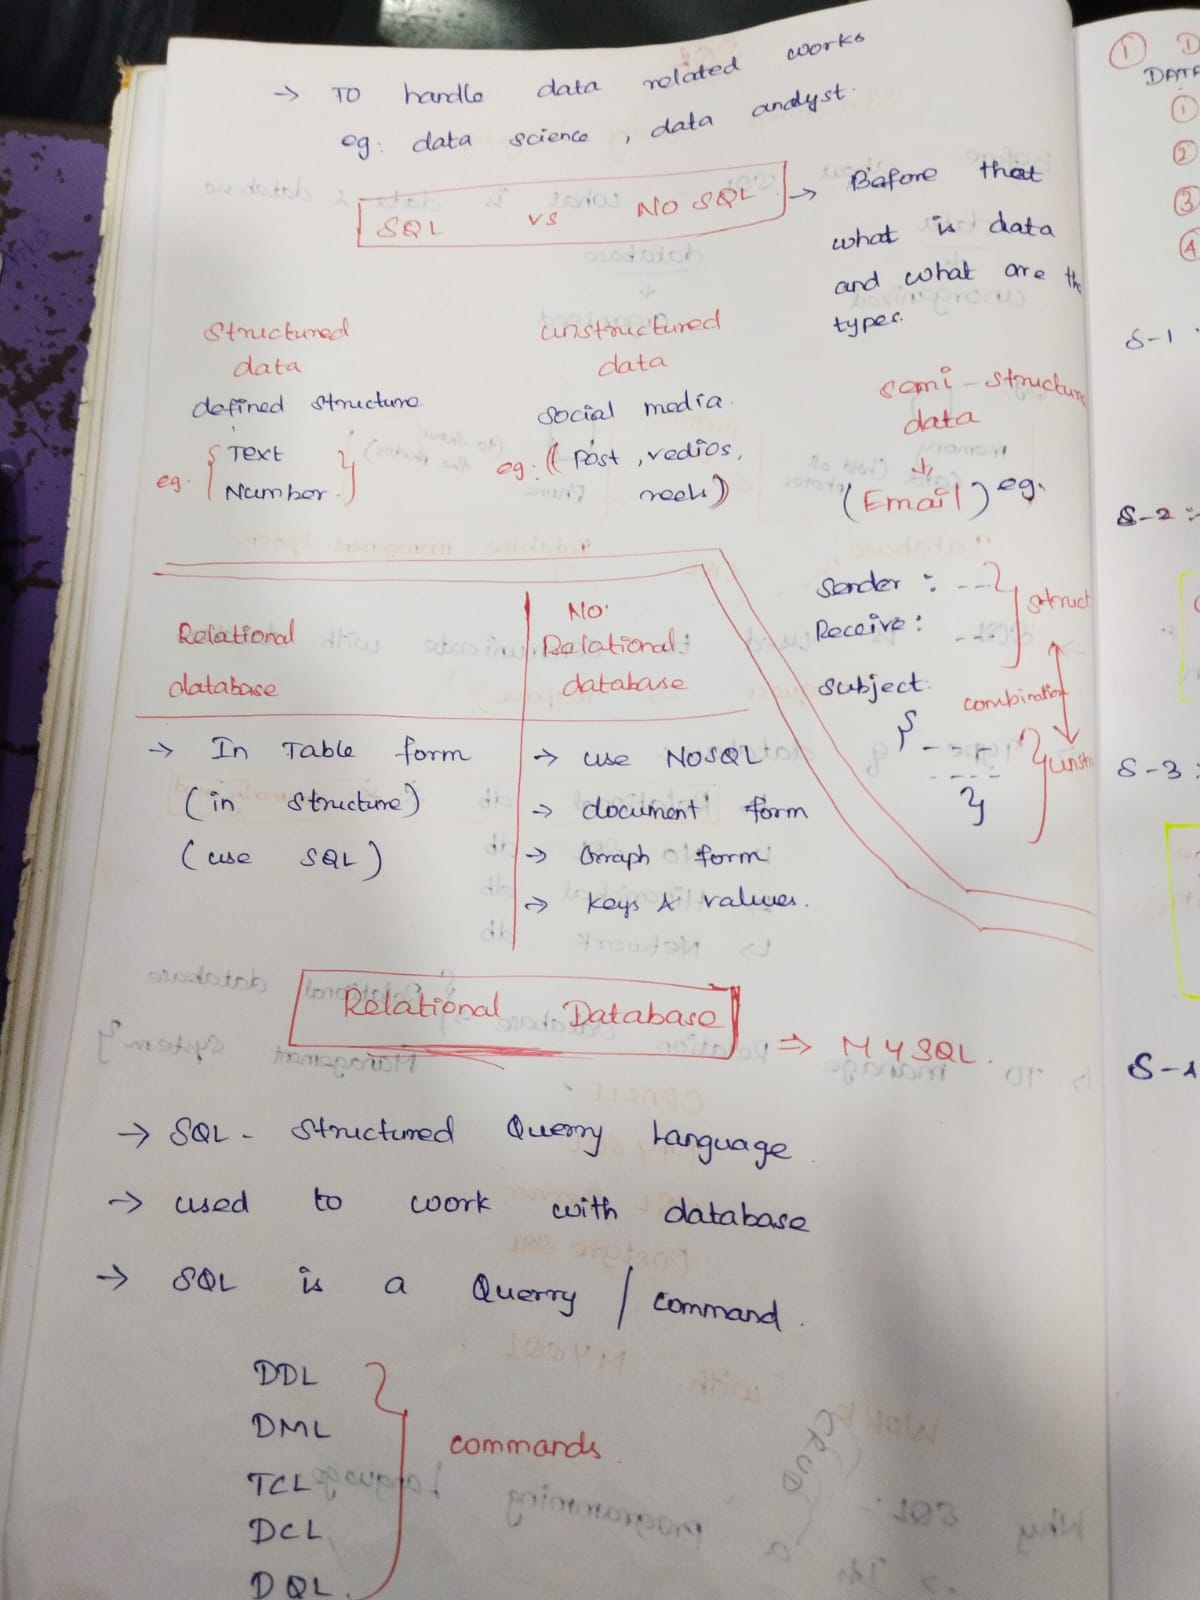 → TO handle data related works
eg: data science, data analyst.
SQL vs NO SQL
→ Before that
what is data
and what are the
types.
Structured
data
defined structure
eg. { TEXT
Number. }
unstructured
data
social media.
eg: (( Post, vedios,
reels)
semi-structure
data
↓
(Email) eg.
Sender : ---
Receive : ---
} struct
subject:
combination
{ ---
----
}
} unstr
Relational
database
→ In Table form
(in structure)
(use SQL)
No.
Relational
database
→ use NOSQL
→ document form
→ Graph form
→ keys & values.
Relational Database ⇒ MYSQL.
→ SQL - Structured Querry Language
→ used to work with database
→ SQL is a Querry / command.
DDL
DML
TCL
DCL
DQL.
} commands
① D
DATA
①
②
③
④
S-1
S-2 :-
S-3 :